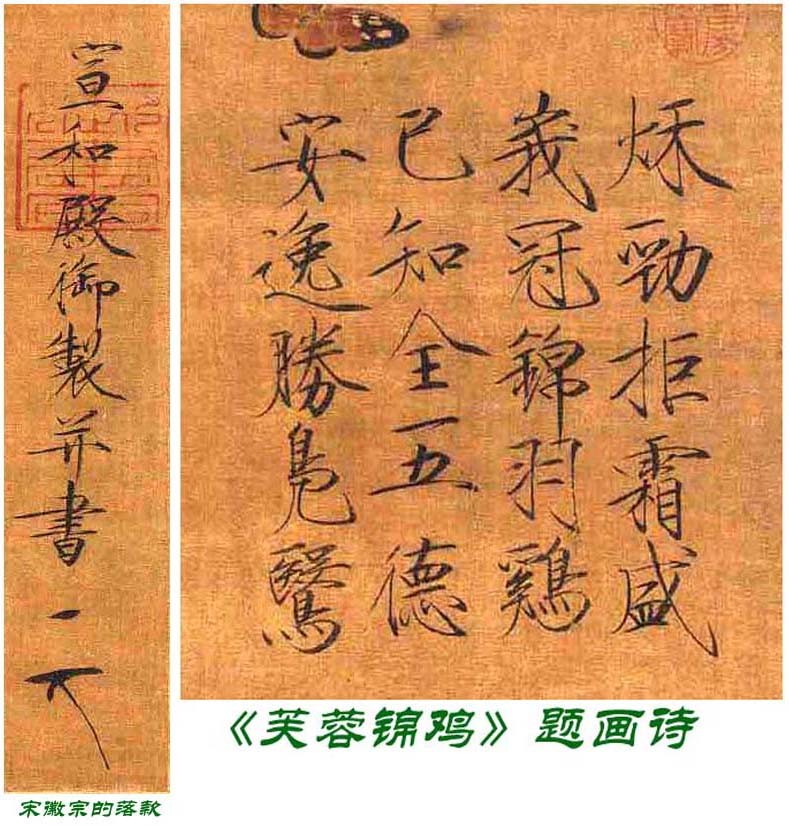 秋勁拒霜盛
峩冠錦羽鷄
已知全五德
安逸勝鳧鷖
《芙蓉锦鸡》题画诗
宣和殿御製并書
宋徽宗的落款